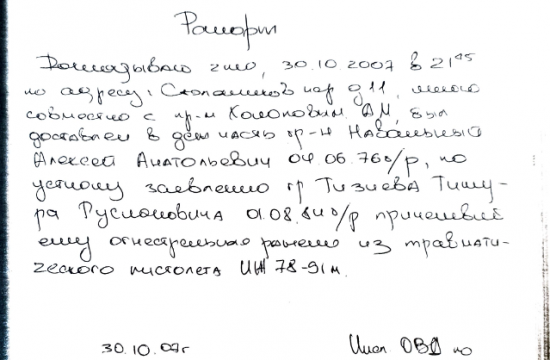 Рапорт
Доказываю что, 30.10.2007 в 21 45
по адресу: Столешников пер д 11, мною
совместно с пр-м Колоповим ДМ, был
доставлен в деж часть гр-н Навальный
Алексей Анатольевич 04 06.76 г/р, по
устному заявлению гр Тизиева Тиму-
ра Руслановича 01.08.84 г/р причинивший
ему огнестрельное ранение из травмати-
ческого пистолета ИЖ 78-91м.
30.10.07г
ОВД по